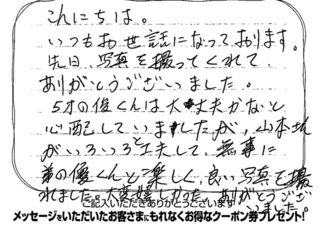 こんにちは。
いつもお世話になっております。
先日、写真を撮ってくれて、
ありがとうございました。
5才の俊くんは大丈夫かなと
心配していましたが、山本さん
がいろいろと工夫して、無事に
弟の優くんと楽しく良い写真を撮
れました。大変嬉しかった。ありがとうござ
いました。
ご記入いただきありがとうございます
メッセージをいただいたお客さまにもれなくお得なクーポン券プレゼント!